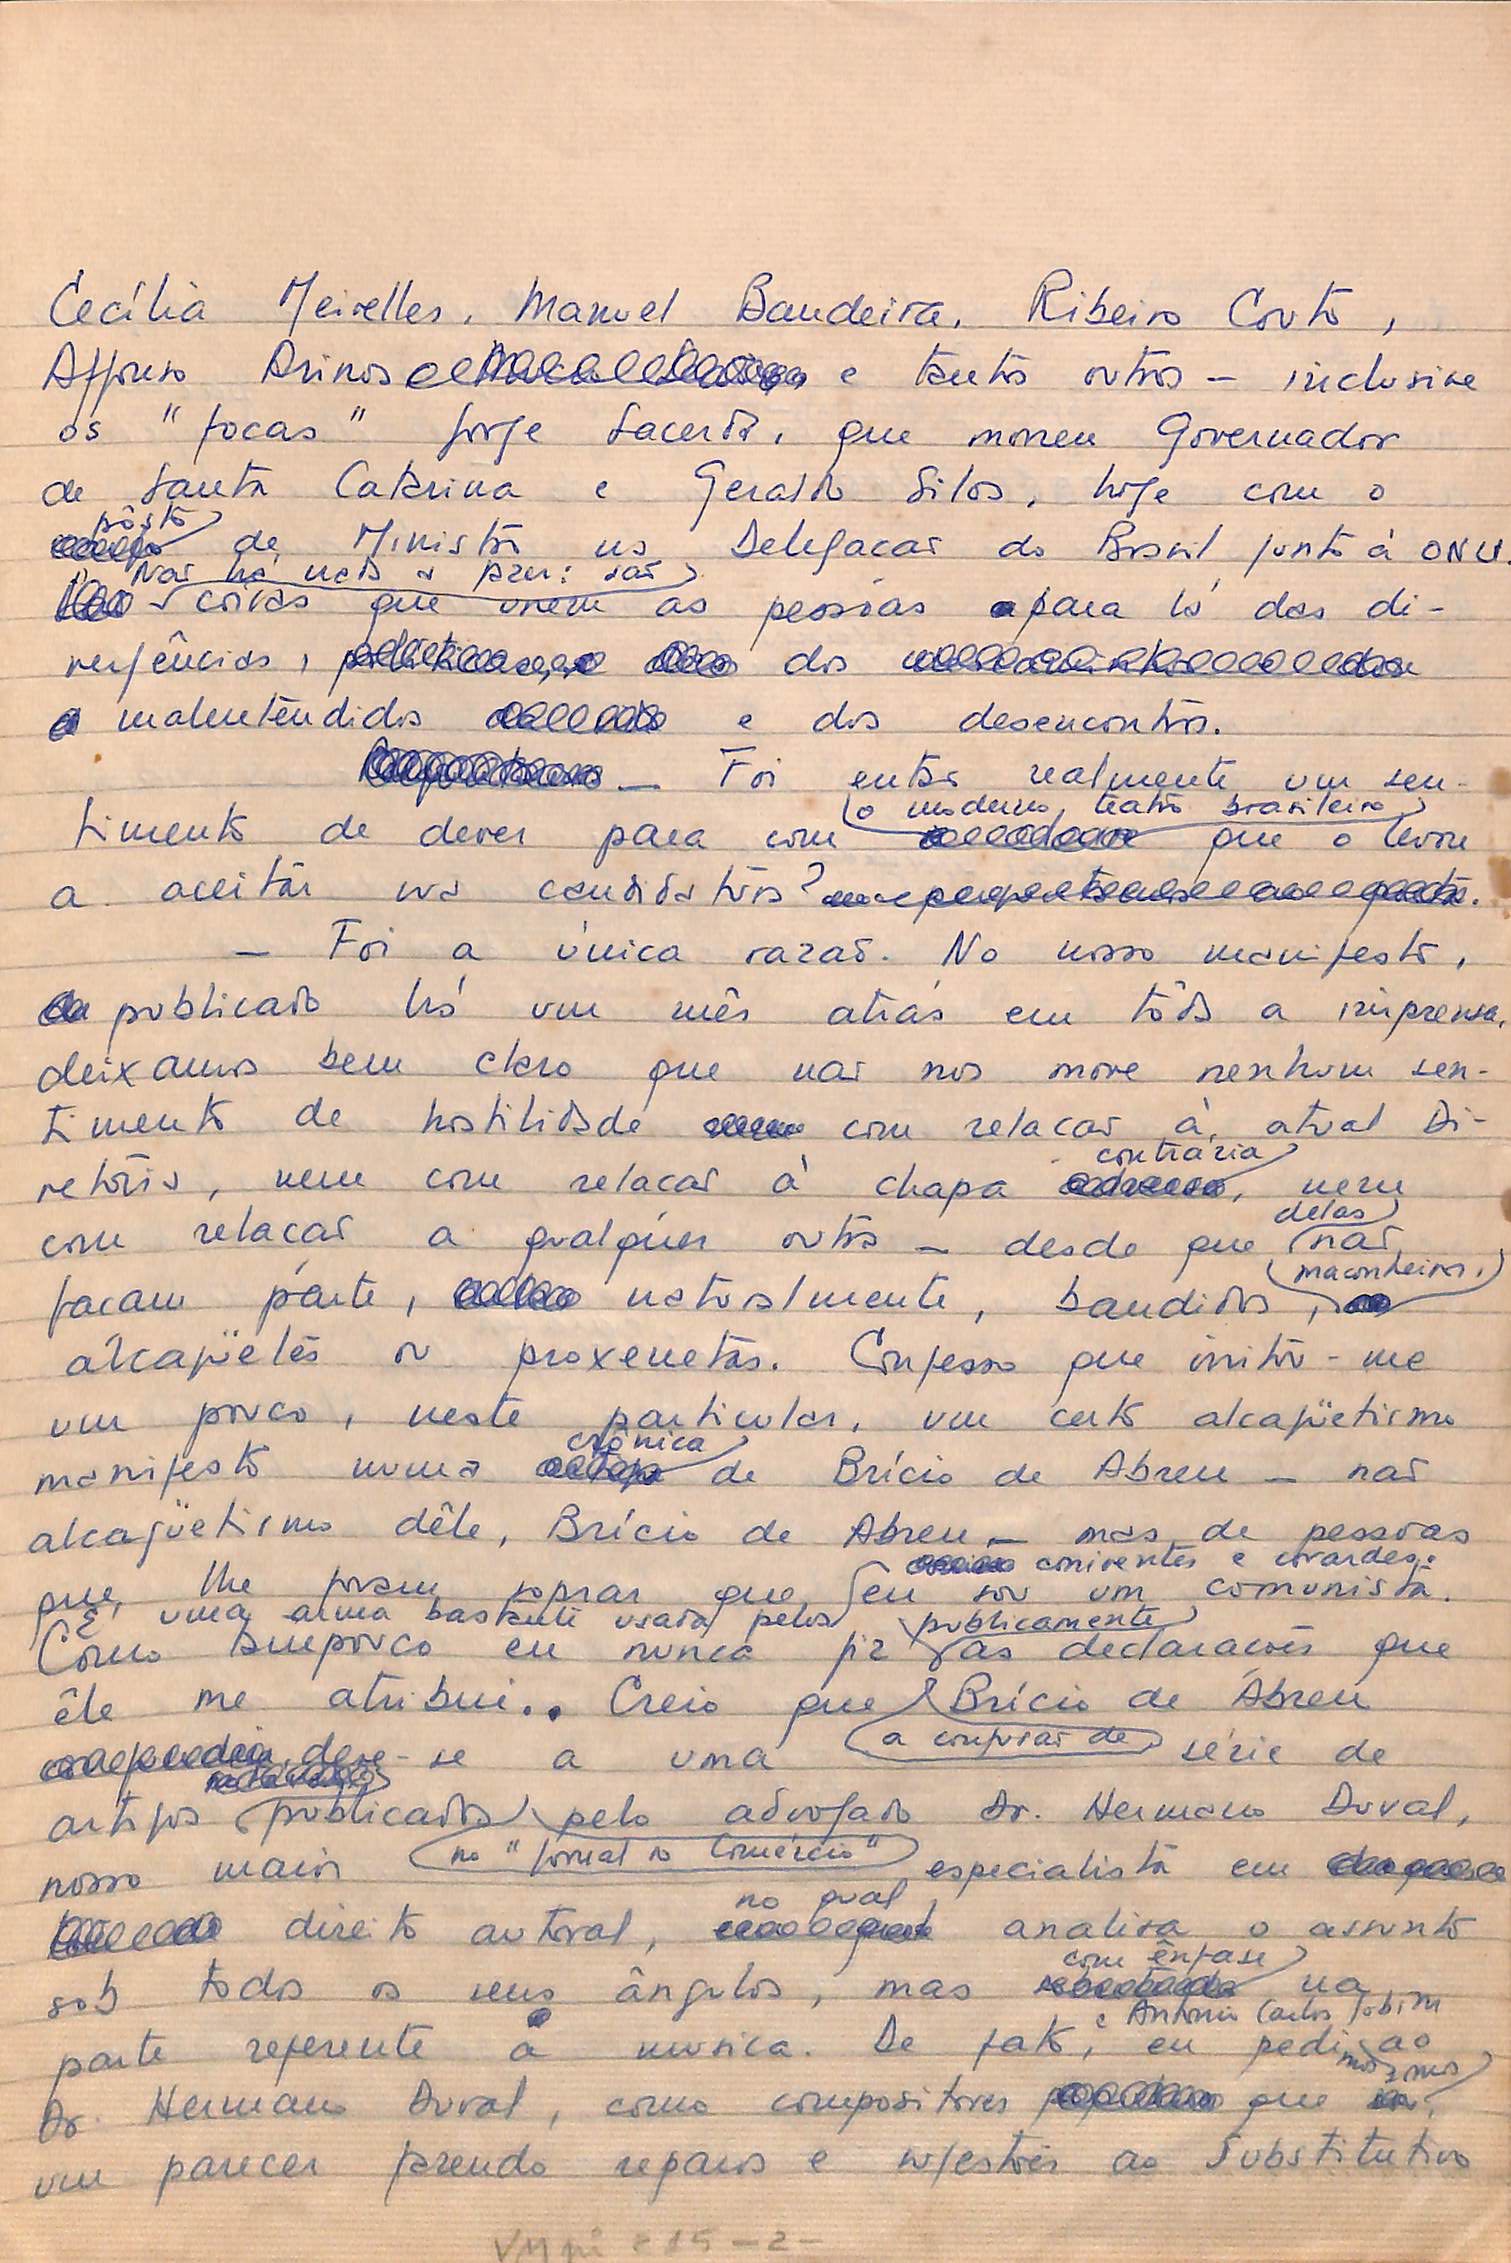 Cecília Meirelles, Manuel Bandeira, Ribeiro Couto,
Affonso Arinos e tantos outros — inclusive
os "focas" Jorge Lacerda, que morreu Governador
de Santa Catarina e Geraldo Silos, hoje com o
pôsto
de Ministro na Delegação do Brasil junto à ONU.
Não há nada a fazer: são
coisas que unem as pessoas para lá das di-
vergências, dos
malentendidos e dos desencontros.
— Foi então realmente um sen-
o moderno teatro brasileiro
timento de dever para com que o levou
a aceitar sua candidatura?
— Foi a única razão. No nosso manifesto,
publicado há um mês atrás em tôda a imprensa,
deixamos bem claro que não nos move nenhum sen-
timento de hostilidade com relação à atual Di-
contrária
retoria, nem com relação à chapa, nem
delas
com relação a qualquer outra — desde que não
maconheiros,
façam parte, naturalmente, bandidos,
alcagüetes ou proxenetas. Confesso que irritou-me
um pouco, neste particular, um certo alcagüetismo
crônica
manifesto numa de Brício de Abreu — não
alcagüetismo dêle, Brício de Abreu — mas de pessoas
coniventes e covardes.
que lhe foram soprar que eu sou um comunista.
É uma arma bastante usada pelos
publicamente
Como tampouco eu nunca fiz as declarações que
êle me atribui.. Creio que Brício de Abreu
a confusão de
deve-se a uma série de
artigos publicados pelo advogado Dr. Hermano Duval,
no "Jornal do Comércio"
nosso maior especialista em
no qual
direito autoral, analisa o assunto
com ênfase
sob todos os seus ângulos, mas na
e Antonio Carlos Jobim
parte referente à musica. De fato, eu pedi ao
Dr. Hermano Duval, como compositores que somos,
um parecer fazendo reparos e sugestões ao Substitutivo